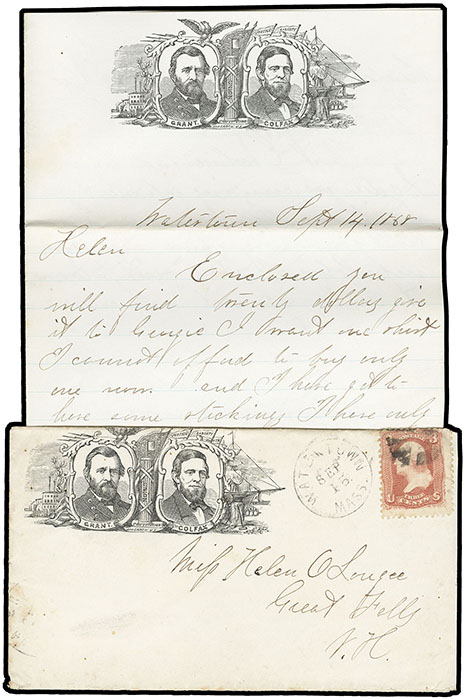 GRANT COLFAX
Watertown Sept 14, 1868
Helen
Enclosed you
will find twenty dollars give
it to Georgie I want one shirt
I cannot afford to buy only
one now. and I have got to
have some stockings I have only
GRANT COLFAX
WATERTOWN
SEP
15
MASS.
U THREE CENTS S
Miss Helen O Lougee
Great Falls
N. H.